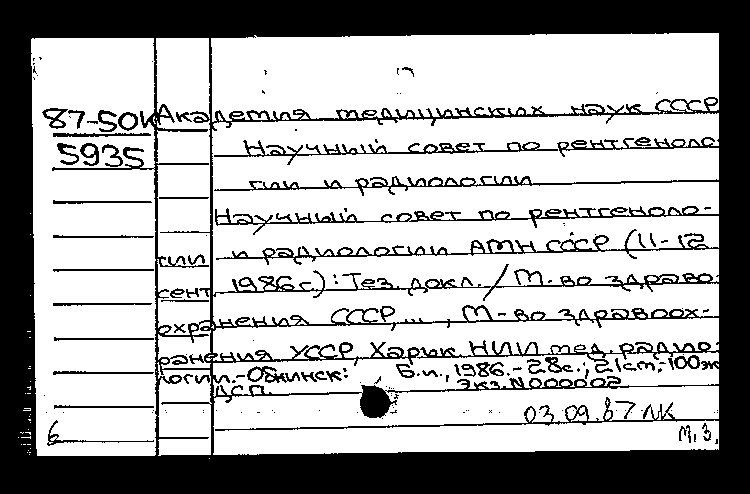 87-50К Академия медицинских наук СССР
5935 Научный совет по рентгеноло-
гии и радиологии
Научный совет по рентгеноло-
гии и радиологии АМН СССР (11-12
сент. 1986 г.): Тез. докл. / М-во здраво-
охранения СССР, ... , М-во здравоох-
ранения УССР, Харьк. НИИ мед. радио-
логии.-Обнинск: Б.и., 1986.-28с.; 21см.-100эк
ДСП. Экз. N000002
03.09.87 ЛК
6 М.З.